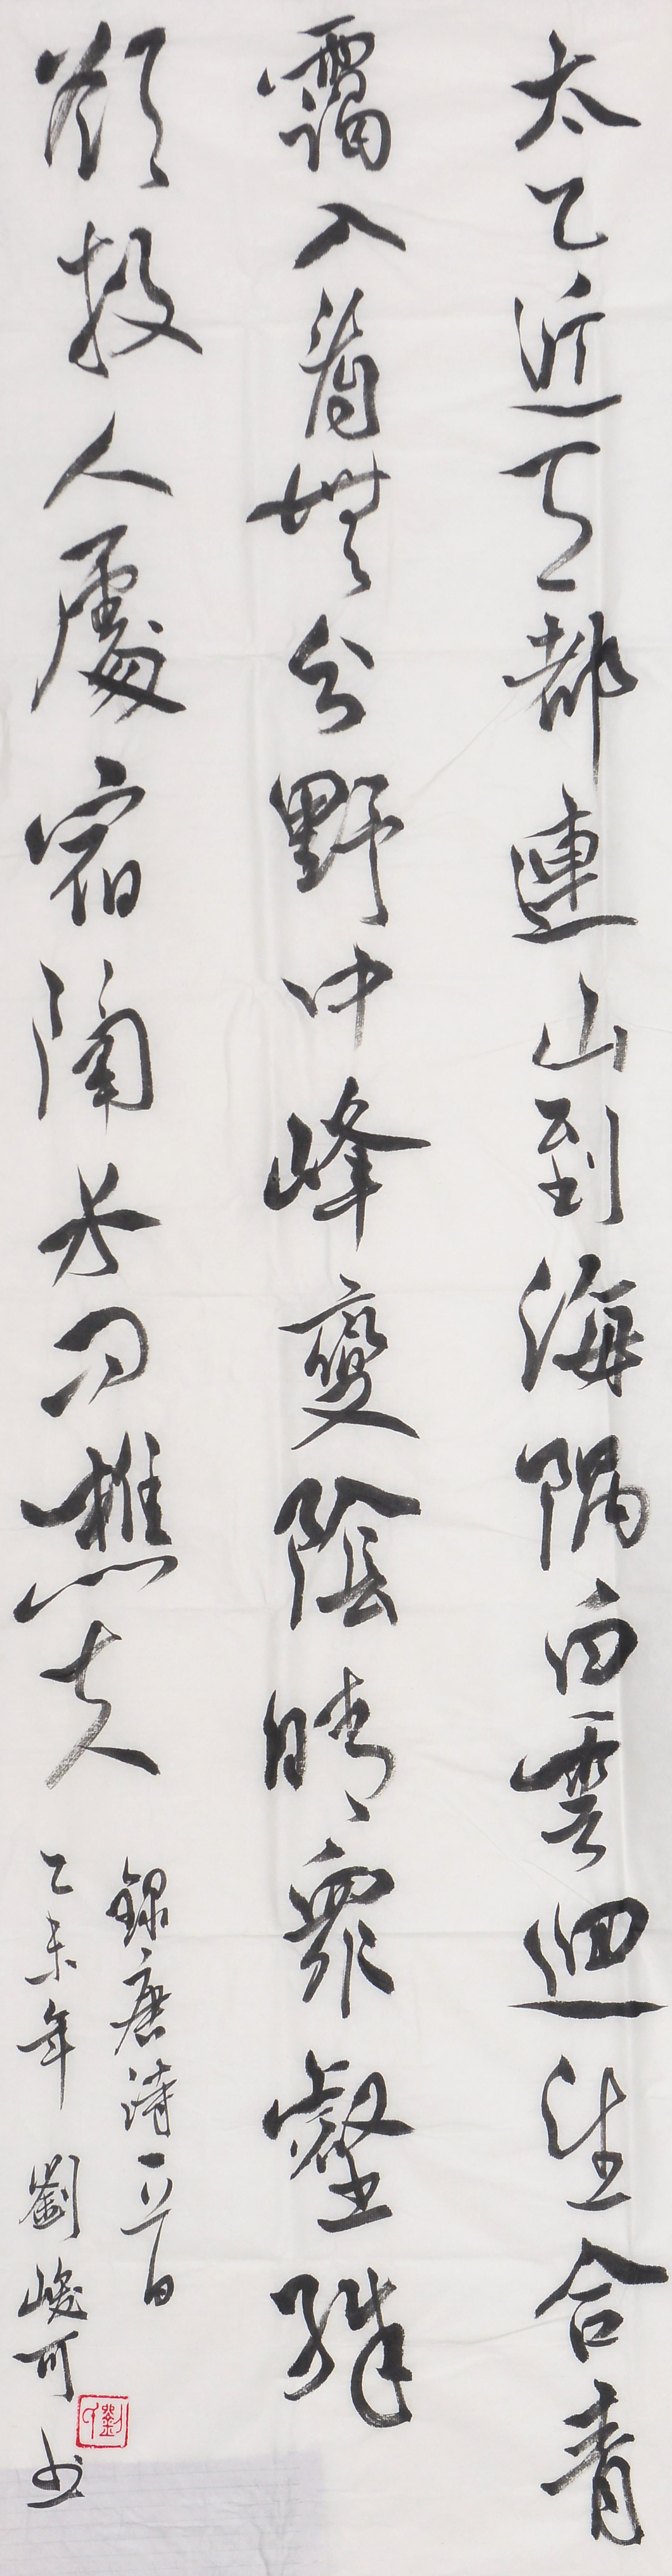 太乙近天都連山到海隅白雲迴望合青
靄入看無分野中峰變陰晴眾壑殊
欲投人處宿隔水問樵夫
錄唐詩一首
乙未年 劉峻可 书